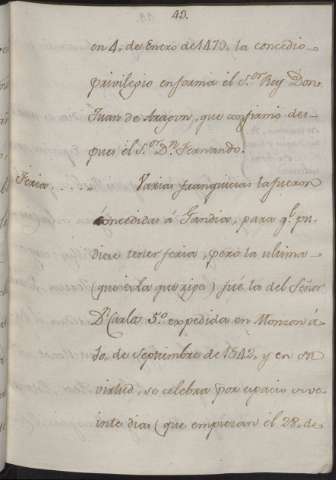 43.
en 4. de Enero de 1473, la concedio
privilegio en forma el S.or Rey Don
Juan de Aragon, que confirmó des-
pues el S.or D.n Fernando.
Feria..... Varias franquicias la fueron
concedidas á Gandia, para q.e pu-
diese tener feria, pero la ultima
(que es la que rige) fué la del Señor
D.n Carlos 5.º expedida en Monzon á
de Septiembre de 1542, y en su
virtud, se celebra por espacio vive
inte dias (que empiezan el 28. de